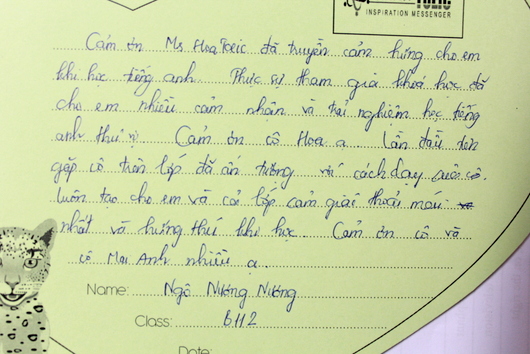 TOEIC
INSPIRATION MESSENGER
Cảm ơn Ms Hoa Toeic đã truyền cảm hứng cho em
khi học tiếng anh. Thực sự tham gia khoá học đã
cho em nhiều cảm nhận và trải nghiệm học tiếng
anh thú vị. Cảm ơn cô Hoa ạ. Lần đầu tiên
gặp cô trên lớp đã ấn tượng với cách dạy của cô.
luôn tạo cho em và cả lớp cảm giác thoải mái
nhất và hứng thú khi học. Cảm ơn cô và
cô Mai Anh nhiều ạ.
Name: Ngô Nương Nương
Class: BH2
Date: